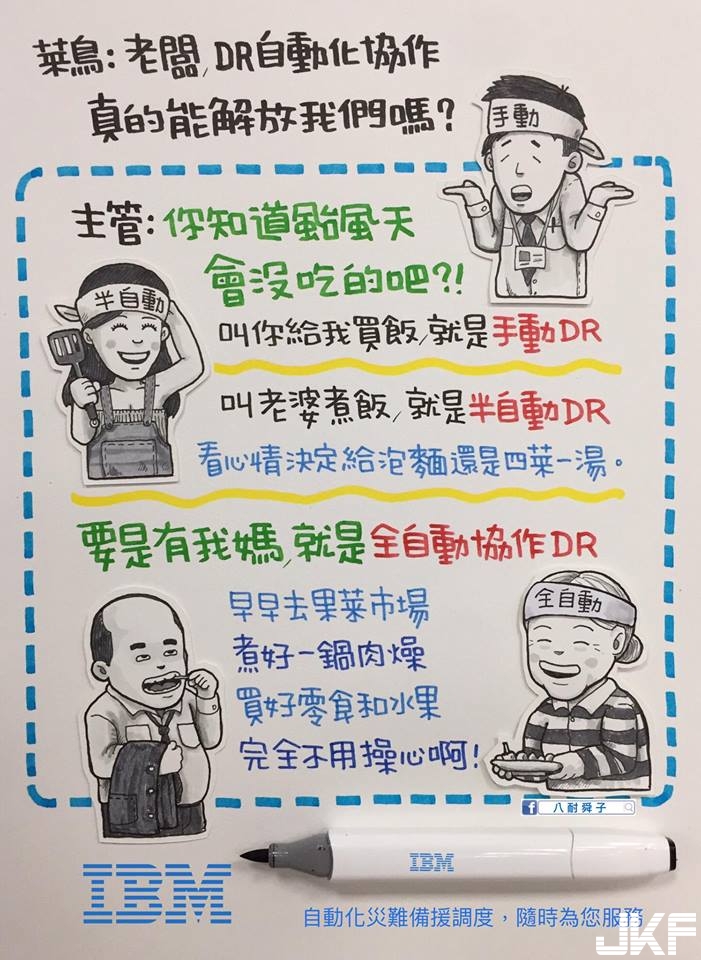 菜鳥：老闆，DR自動化協作
真的能解放我們嗎？
手動
主管：你知道颱風天
會沒吃的吧?!
半自動
叫你給我買飯，就是手動DR
叫老婆煮飯，就是半自動DR
看心情決定給泡麵還是四菜一湯。
要是有我媽，就是全自動協作DR
全自動
早早去果菜市場
煮好一鍋肉燥
買好零食和水果
完全不用操心啊！
f 八耐舜子
IBM
IBM
自動化災難備援調度，隨時為您服務
JKF